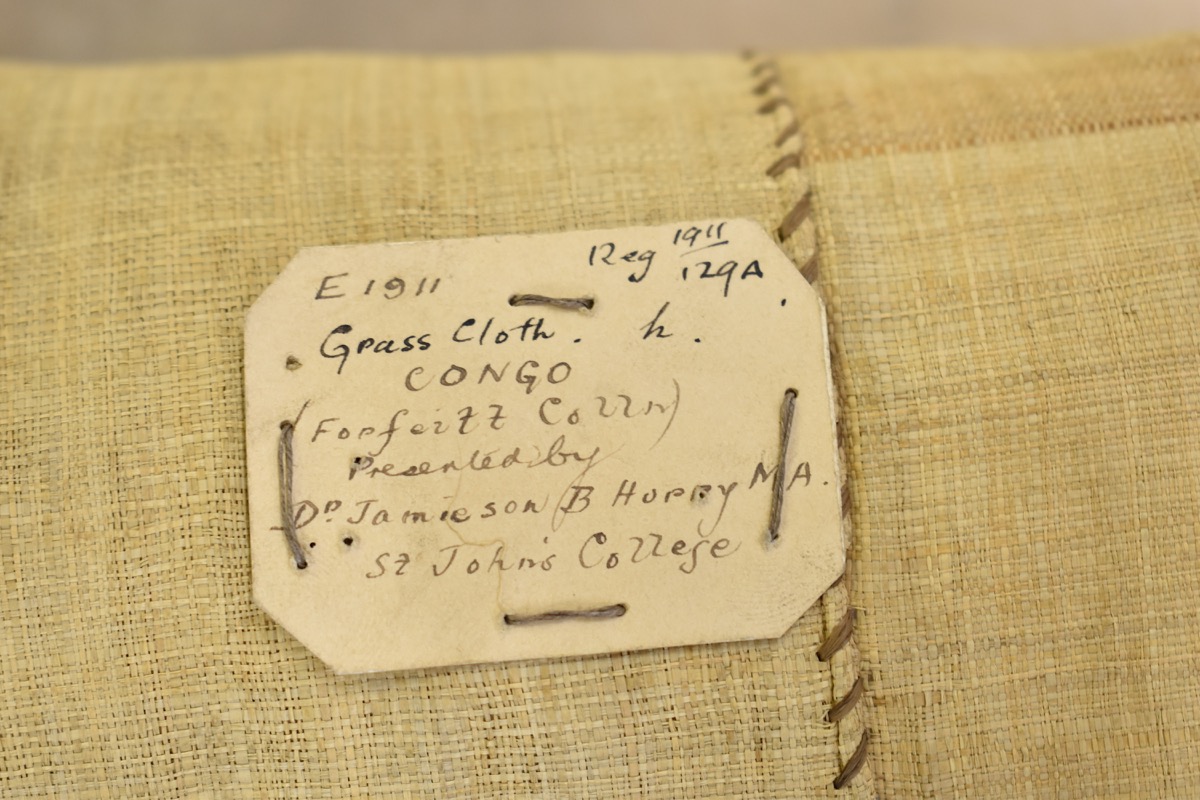 E 1911 Reg 1911/129A.
Grass Cloth. h.
CONGO
(Forfeitt Colln)
Presented by
Dr Jamieson B Hurry MA.
St John's College